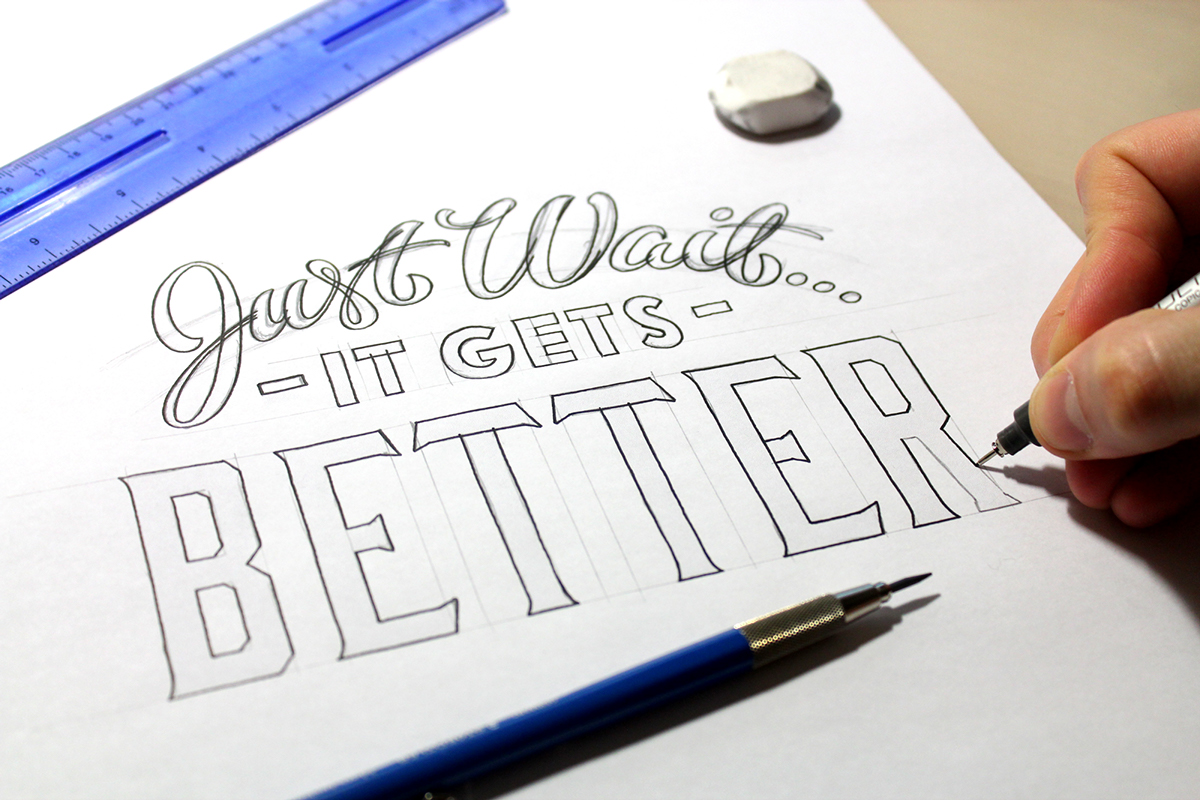 Just Wait...
- IT GETS -
BETTER